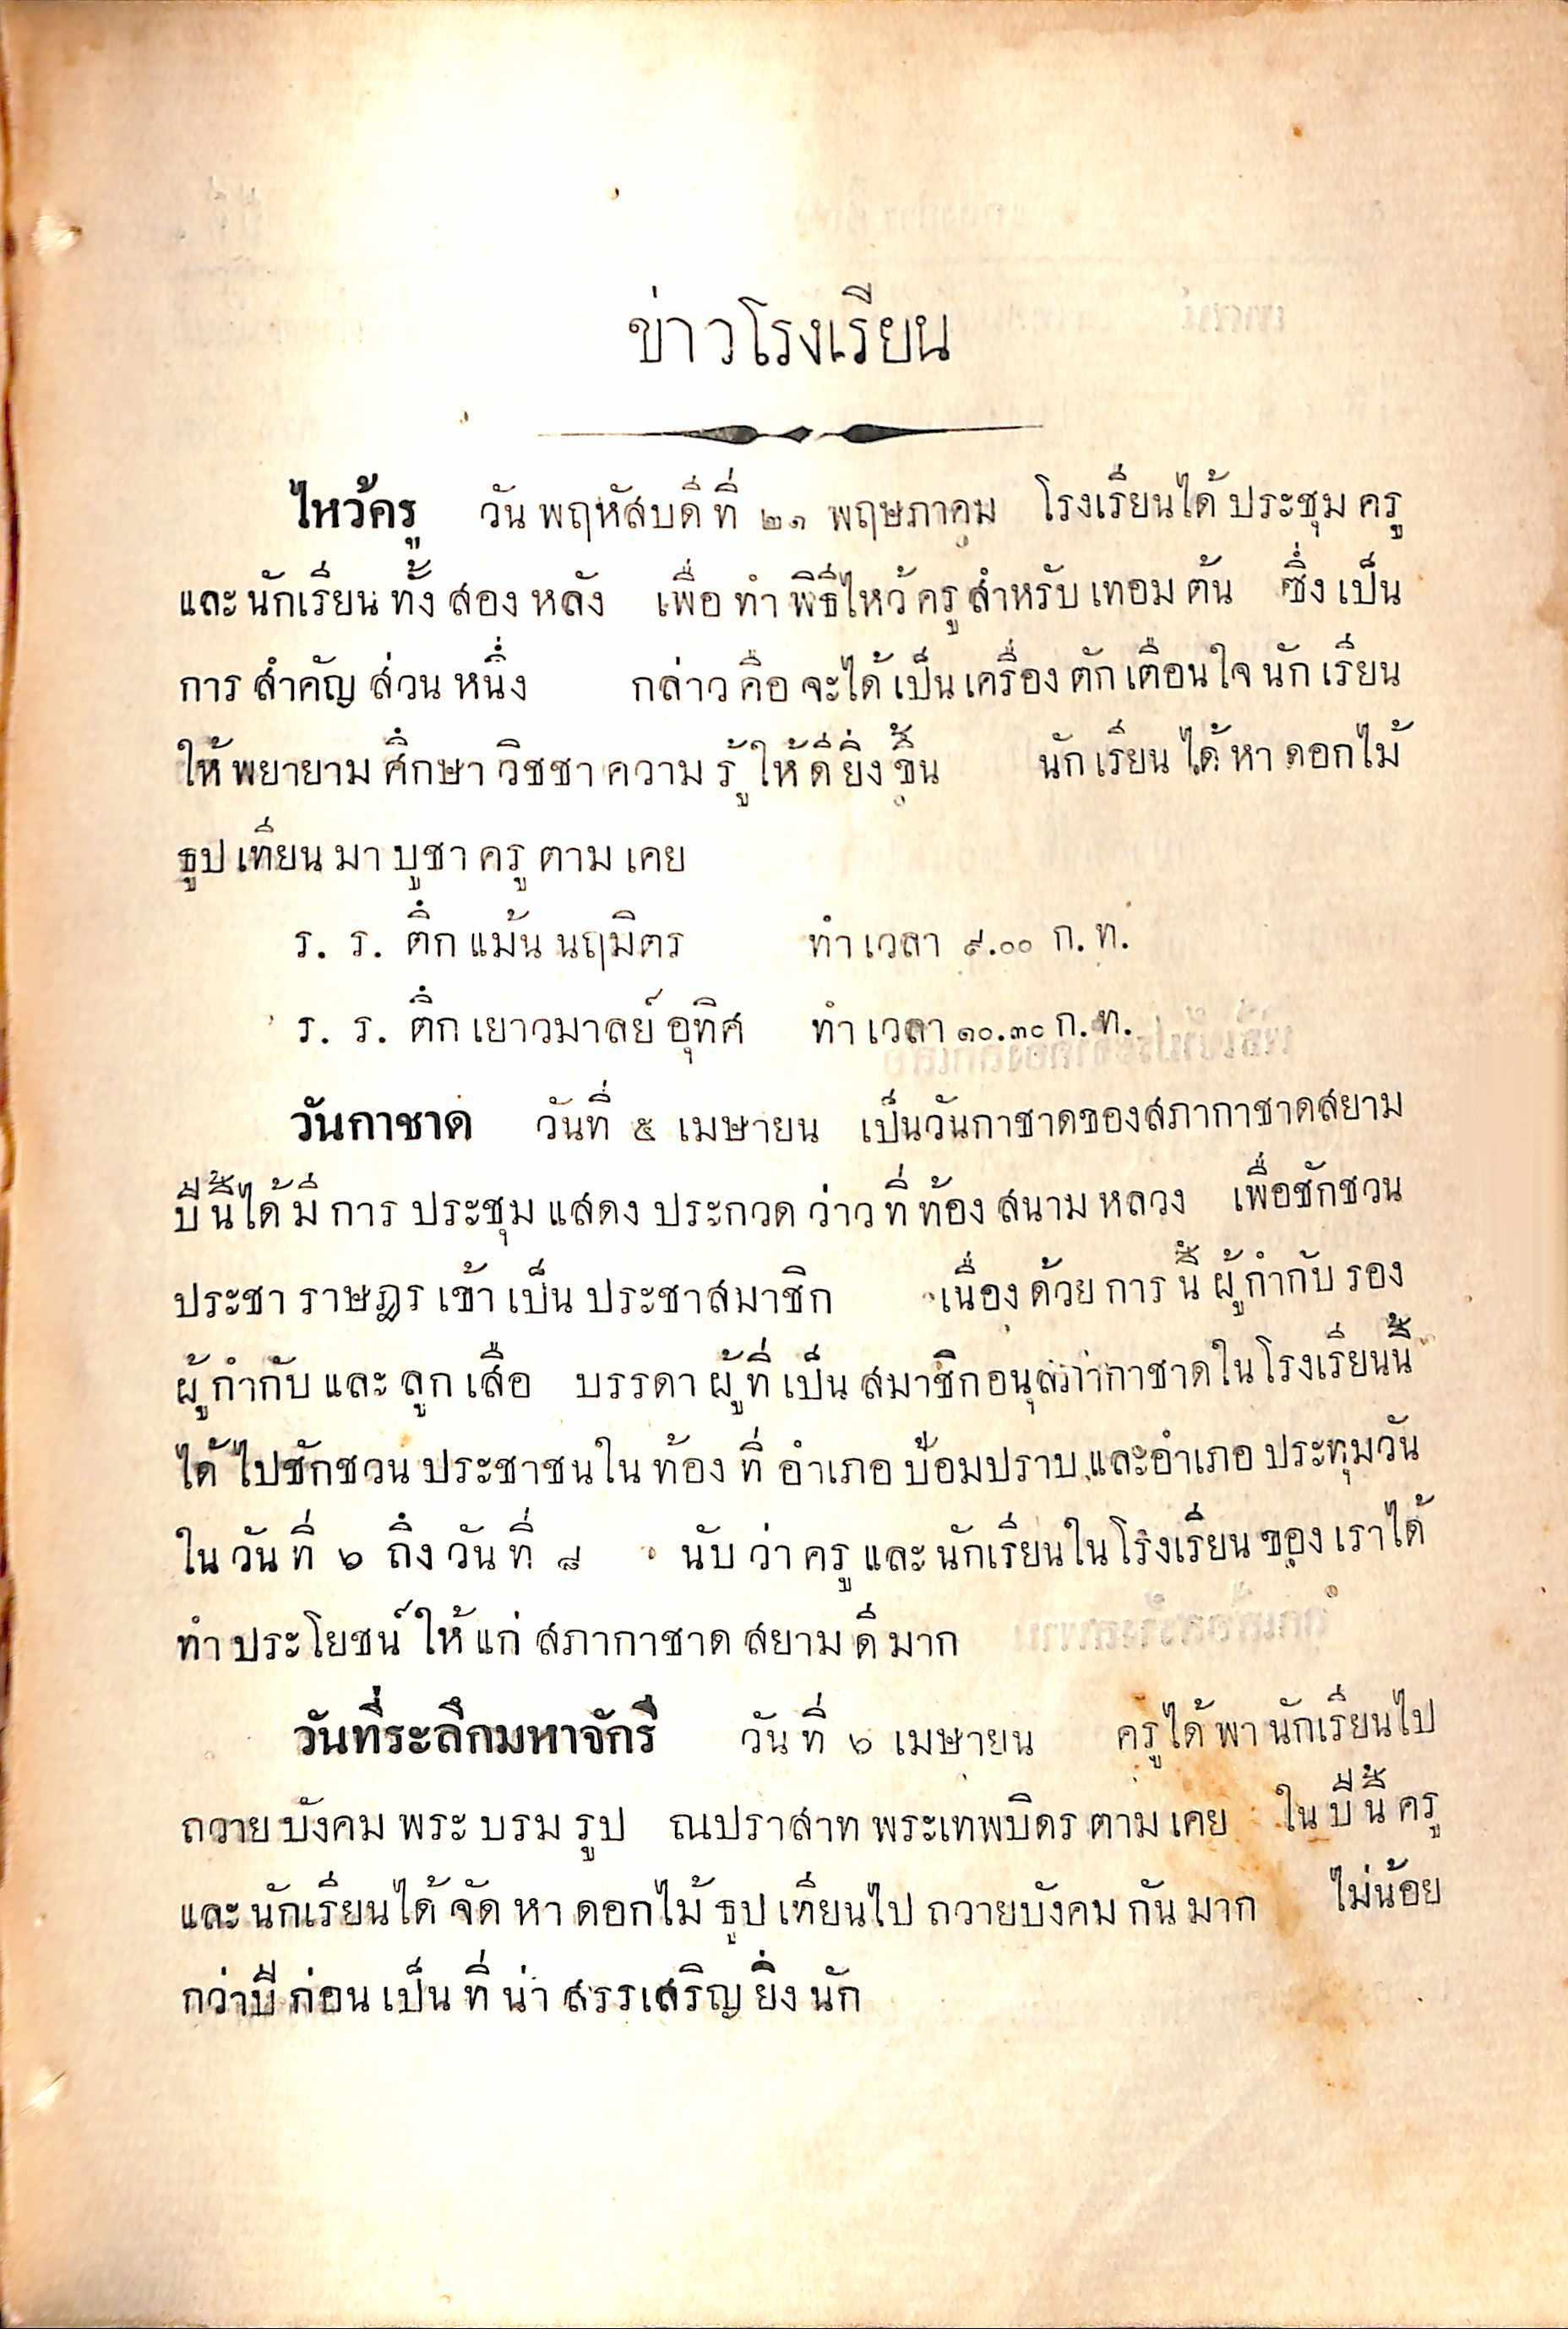 ข่าวโรงเรียน
ไหว้ครู วันพฤหัสบดีที่ ๒๑ พฤษภาคม โรงเรียนได้ประชุมครู
และนักเรียนทั้งสองหลัง เพื่อทำพิธีไหว้ครูสำหรับเทอมต้น ซึ่งเป็น
การสำคัญส่วนหนึ่ง กล่าวคือจะได้เป็นเครื่องตักเตือนใจนักเรียน
ให้พยายามศึกษาวิชชาความรู้ให้ดียิ่งขึ้น นักเรียนได้หาดอกไม้
ธูปเทียนมาบูชาครูตามเคย
ร. ร. ตึกแม้นนฤมิตร ทำเวลา ๙.๐๐ ก.ท.
ร. ร. ตึกเยาวมาลย์อุทิศ ทำเวลา ๑๐.๓๐ ก.ท.
วันกาชาด วันที่ ๕ เมษายน เป็นวันกาชาดของสภากาชาดสยาม
ปีนี้ได้มีการประชุมแสดงประกวดว่าวที่ท้องสนามหลวง เพื่อชักชวน
ประชาราษฎรเข้าเป็นประชาสมาชิก เนื่องด้วยการนี้ผู้กำกับรอง
ผู้กำกับและลูกเสือ บรรดาผู้ที่เป็นสมาชิกอนุสภากาชาดในโรงเรียนนี้
ได้ไปชักชวนประชาชนในท้องที่อำเภอป้อมปราบและอำเภอประทุมวัน
ในวันที่ ๖ ถึงวันที่ ๘ นับว่าครูและนักเรียนในโรงเรียนของเราได้
ทำประโยชน์ให้แก่สภากาชาดสยามดีมาก
วันที่ระลึกมหาจักรี วันที่ ๖ เมษายน ครูได้พานักเรียนไป
ถวายบังคมพระบรมรูป ณปราสาทพระเทพบิดรตามเคย ในปีนี้ครู
และนักเรียนได้จัดหาดอกไม้ธูปเทียนไปถวายบังคมกันมาก ไม่น้อย
กว่าปีก่อนเป็นที่น่าสรรเสริญยิ่งนัก